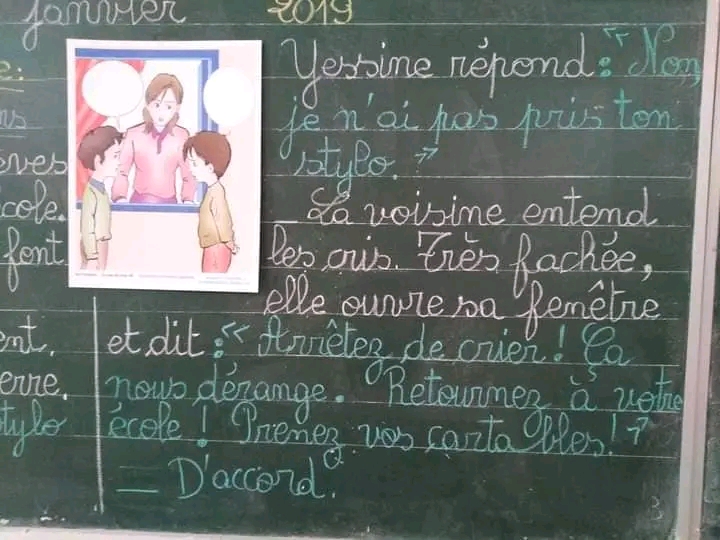 janvier 2019
e:
ns
èves
école.
font
ent.
erre.
stylo
Yessine répond : " Non,
je n'ai pas pris ton
stylo. "
_ La voisine entend
les cris. Très fachée,
elle ouvre sa fenêtre
et dit : " Arrêtez de crier ! Ça
nous dérange. Retournez à votre
école ! Prenez vos cartables ! "
_ D'accord.